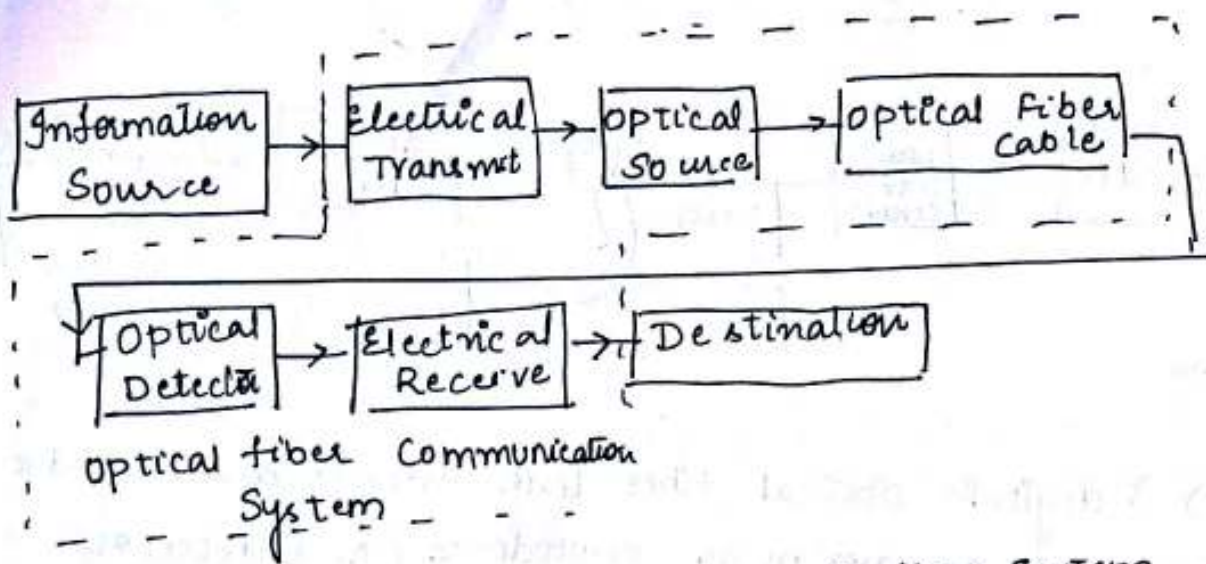 Information
Source
Electrical
Transmit
Optical
Source
Optical Fiber
Cable
Optical
Detector
Electrical
Receive
Destination
Optical fiber Communication
System